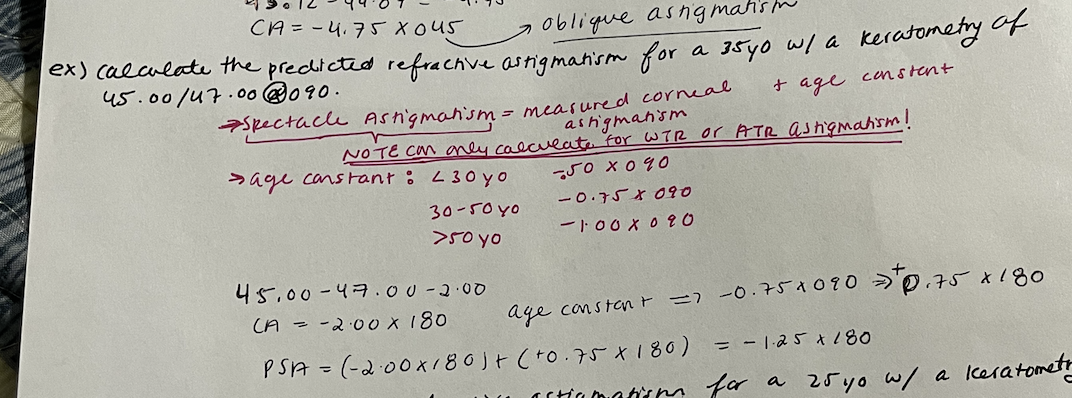 CA = -4.75 x 045 → oblique astigmatism
ex) calculate the predicted refractive astigmatism for a 35yo w/ a keratometry of
45.00/47.00 @090.
→ Spectacle Astigmatism = measured corneal astigmatism + age constant
NOTE can only calculate for WTR or ATR astigmatism!
→ age constant : <30yo -.50 x 090
30-50yo -0.75 x 090
>50yo -1.00 x 090
45.00-47.00-2.00
CA = -2.00 x 180 age constant => -0.75 x 090 => +0.75 x 180
PSA = (-2.00x180)+(+0.75 x 180) = -1.25 x 180
astigmatism for a 25yo w/ a keratometry